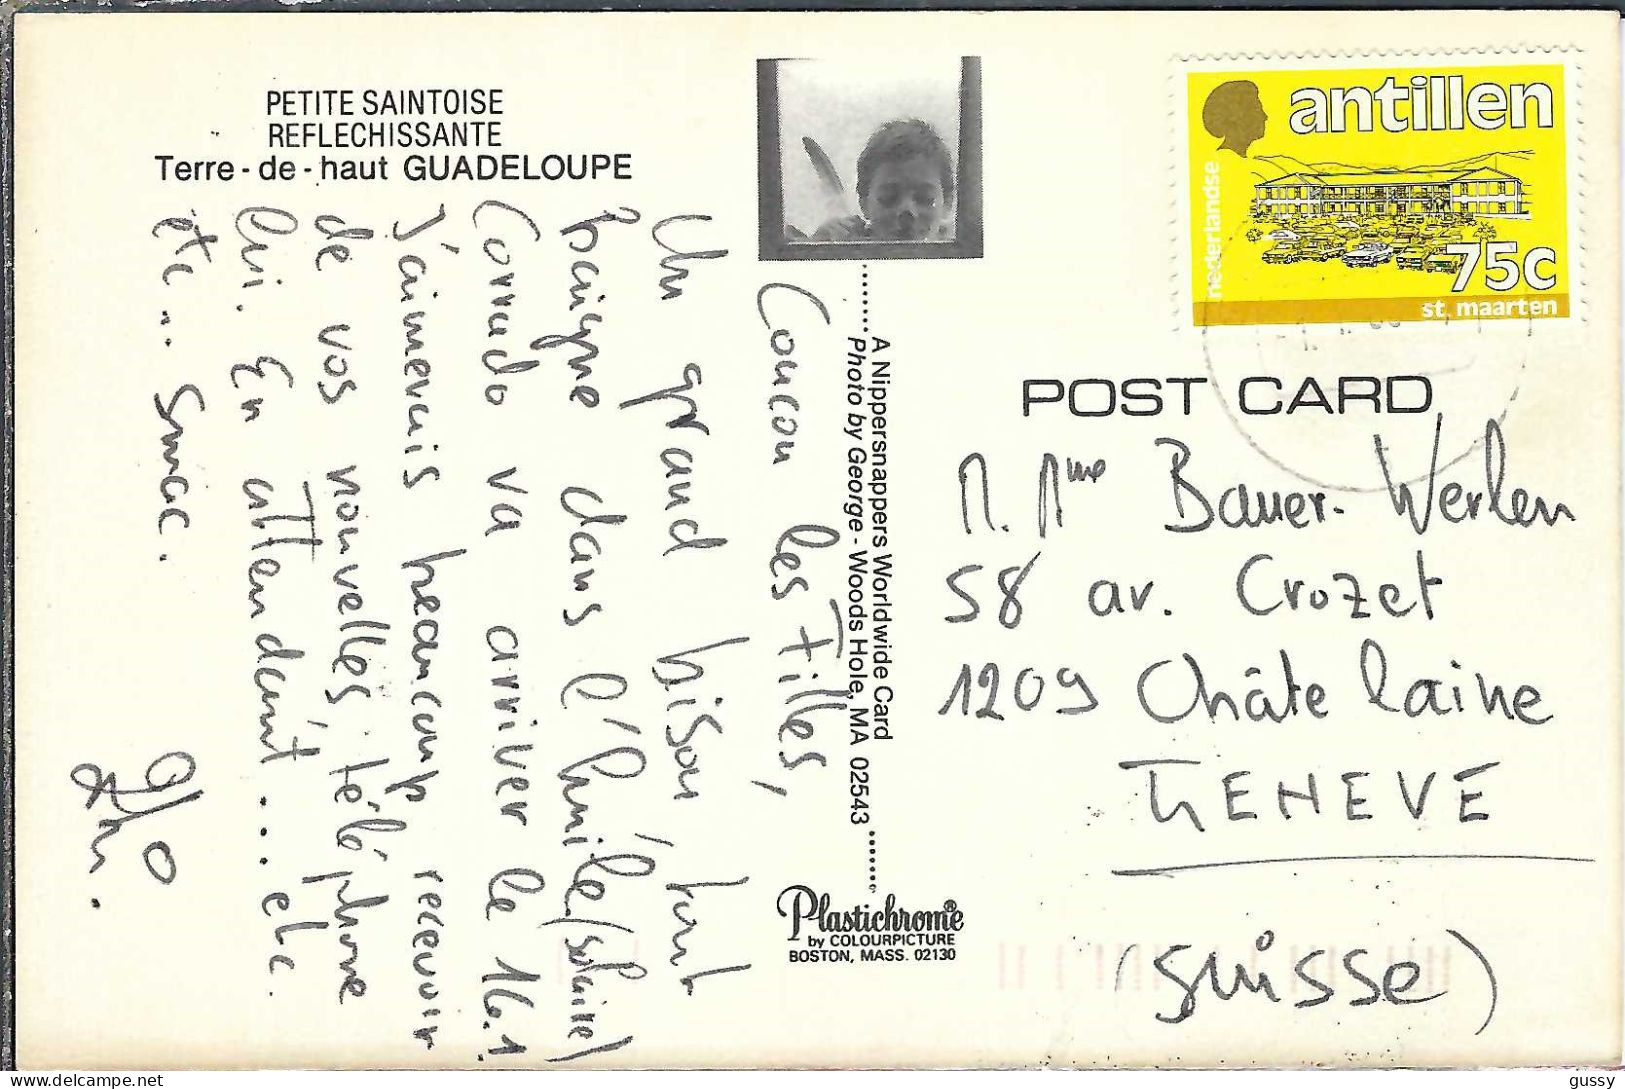 PETITE SAINTOISE
REFLECHISSANTE
Terre-de-haut GUADELOUPE
Coucou les Filles,
Un grand bison, tout
baigne dans l'huile (solaire)
Corrado va arriver le 16.1
J'aimerais beaucoup recevoir
de vos nouvelles, téléphone
lui. En attendant... etc.
etc... Smac.
A Nippersnappers Worldwide Card
Photo by George - Woods Hole, MA 02543
Plastichrome®
by COLOURPICTURE
BOSTON, MASS. 02130
antillen
nederlandse
75c
st. maarten
POST CARD
M. Mme Bauer-Werlen
58 av. Crozet
1209 Châtelaine
GENEVE
(SUISSE)
delcampe.net
gussy